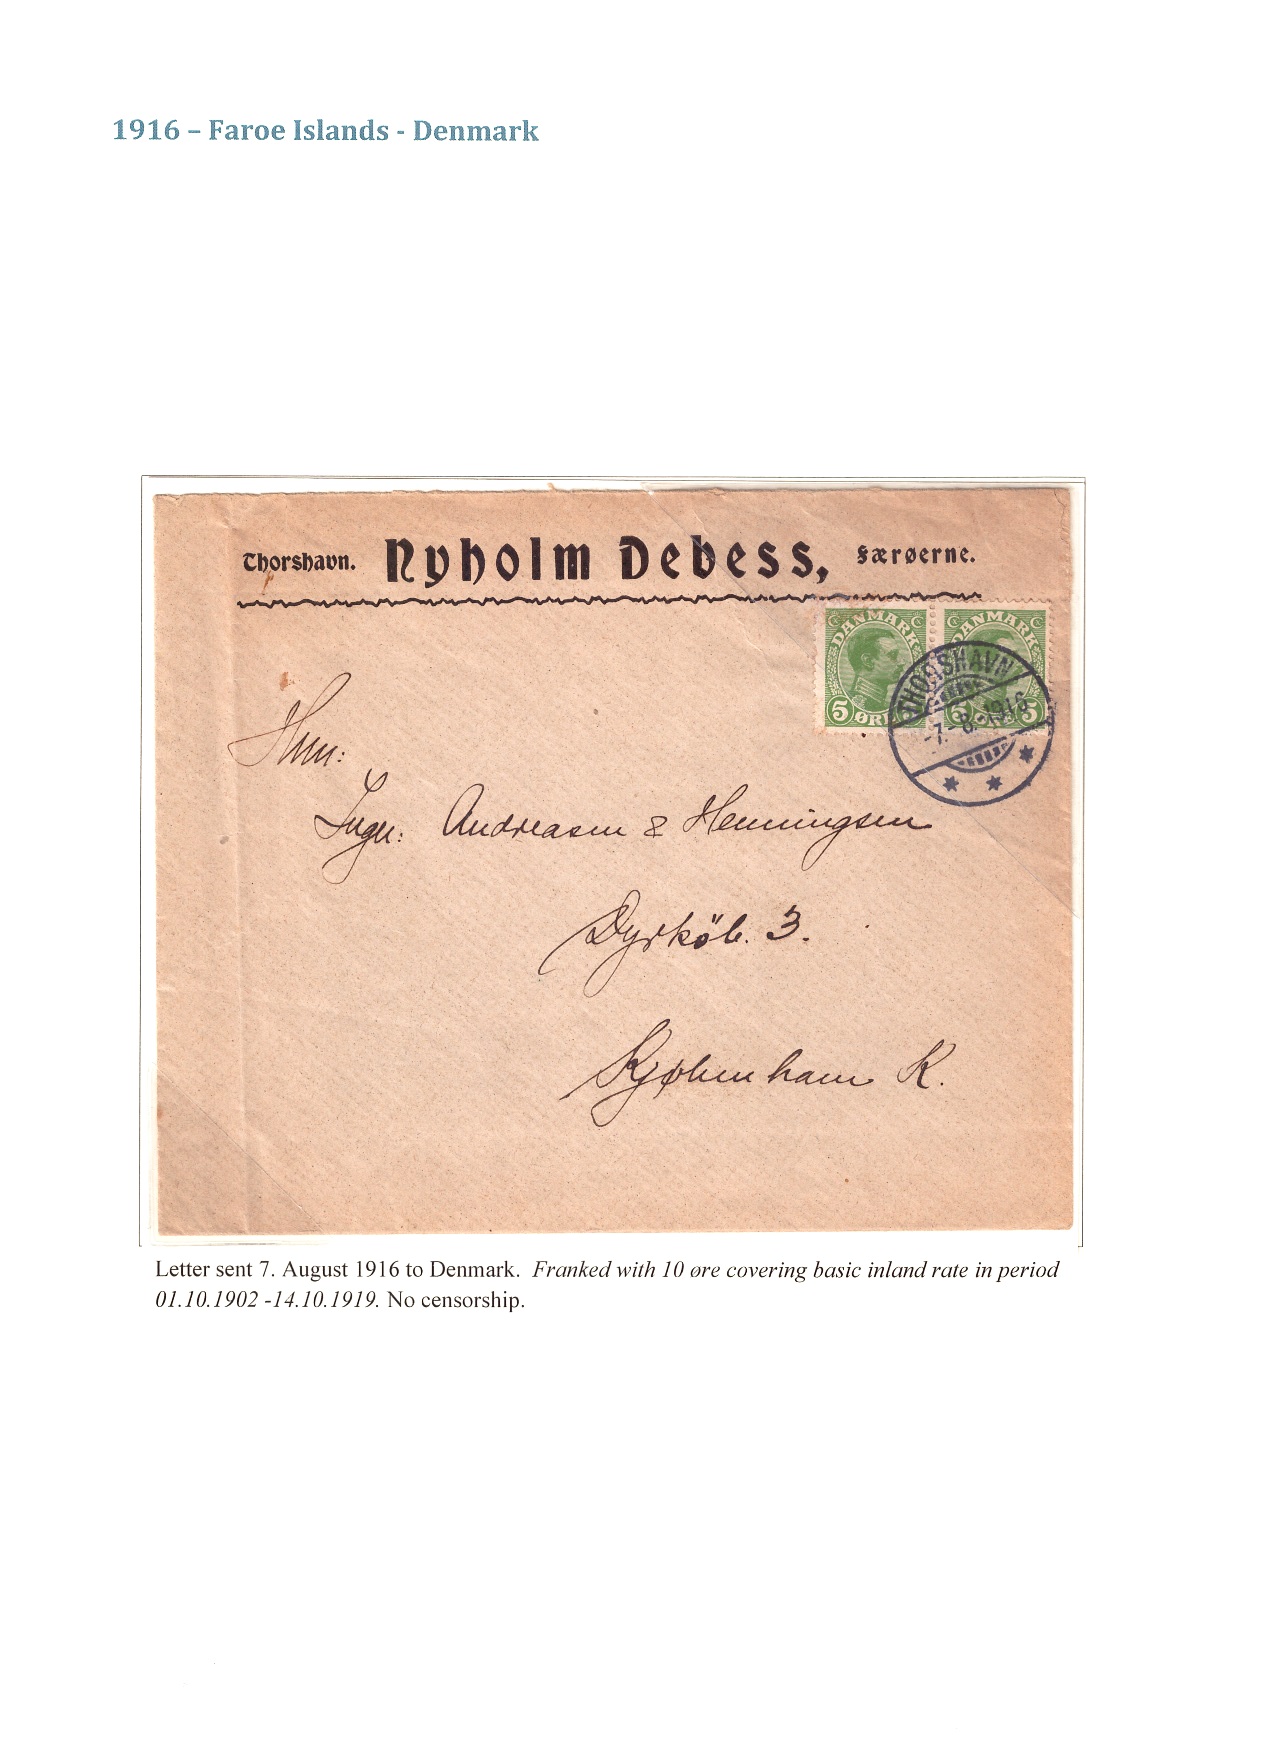 1916 – Faroe Islands - Denmark
Thorshavn. Nyholm Debess, Færøerne.
DANMARK DANMARK
5 ØRE 5 5
THORSHAVN
-7.-8.-1916
Hrrn:
Ingn: Andreasen & Henningsen
Dyrköb. 3.
Kjøbenhavn K.
Letter sent 7. August 1916 to Denmark. Franked with 10 øre covering basic inland rate in period
01.10.1902 -14.10.1919. No censorship.